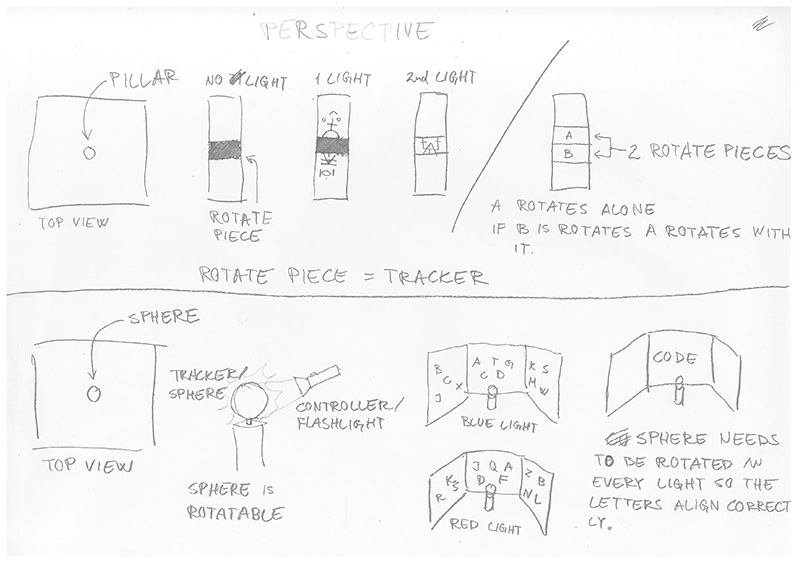 PERSPECTIVE
PILLAR
NO LIGHT
1 LIGHT
2nd LIGHT
A
B
2 ROTATE PIECES
TOP VIEW
ROTATE
PIECE
101
A ROTATES ALONE
IF B IS ROTATES A ROTATES WITH
IT.
ROTATE PIECE = TRACKER
SPHERE
TOP VIEW
TRACKER/
SPHERE
CONTROLLER/
FLASHLIGHT
SPHERE IS
ROTATABLE
B C X J
A T G C D
K S M W
BLUE LIGHT
K S R
J Q A D F
Z B N L
RED LIGHT
CODE
SPHERE NEEDS
TO BE ROTATED IN
EVERY LIGHT SO THE
LETTERS ALIGN CORRECT
LY.